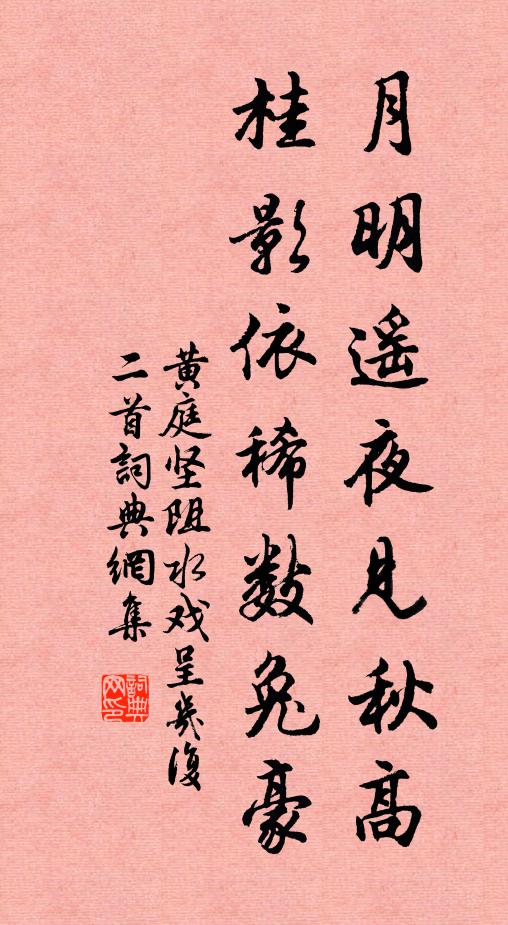 月明遥夜见秋高
桂影依稀数兔豪
黄庭坚阻水戏呈几復
二首詞典網集
詞典网印